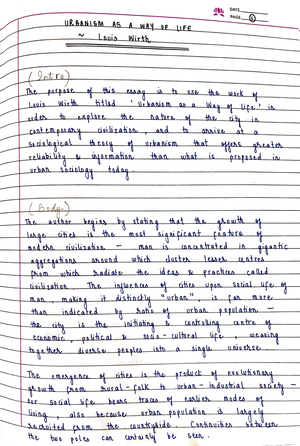 DATE
PAGE
URBANISM AS A WAY OF LIFE
~ Louis Wirth
(Intro)
The purpose of this essay is to use the work of
Louis Wirth titled 'Urbanism as a Way of Life' in
order to explore the nature of the city in
contemporary civilization, and to arrive at a
sociological theory of urbanism that offers greater
reliability & information than what is proposed in
urban sociology today.
(Body)
The author begins by stating that the growth of
large cities is the most significant feature of
modern civilization - man is concentrated in gigantic
aggregations around which cluster lesser centres
from which radiate the ideas & practices called
civilization. The influences of cities upon social life of
man, making it distinctly "urban", is far more
than indicated by ratio of urban population -
the city is the initiating & controlling centre of
economic, political & socio-cultural life, weaving
together diverse peoples into a single universe.
The emergence of cities is the product of evolutionary
growth from rural-folk to urban-industrial society -
our social life bears traces of earlier modes of
living, also because urban population is largely
recruited from the countryside. Continuities between
the two poles can certainly be seen.